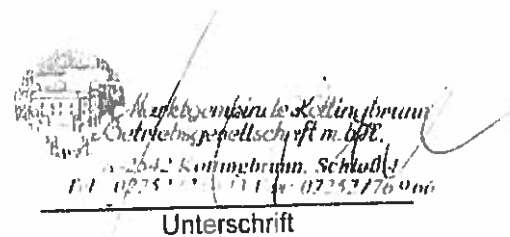 Marktgemeinde Kottingbrunn
Betriebsgesellschaft m.b.H.
A-2542 Kottingbrunn, Schloß
02252/76 9 66
Unterschrift